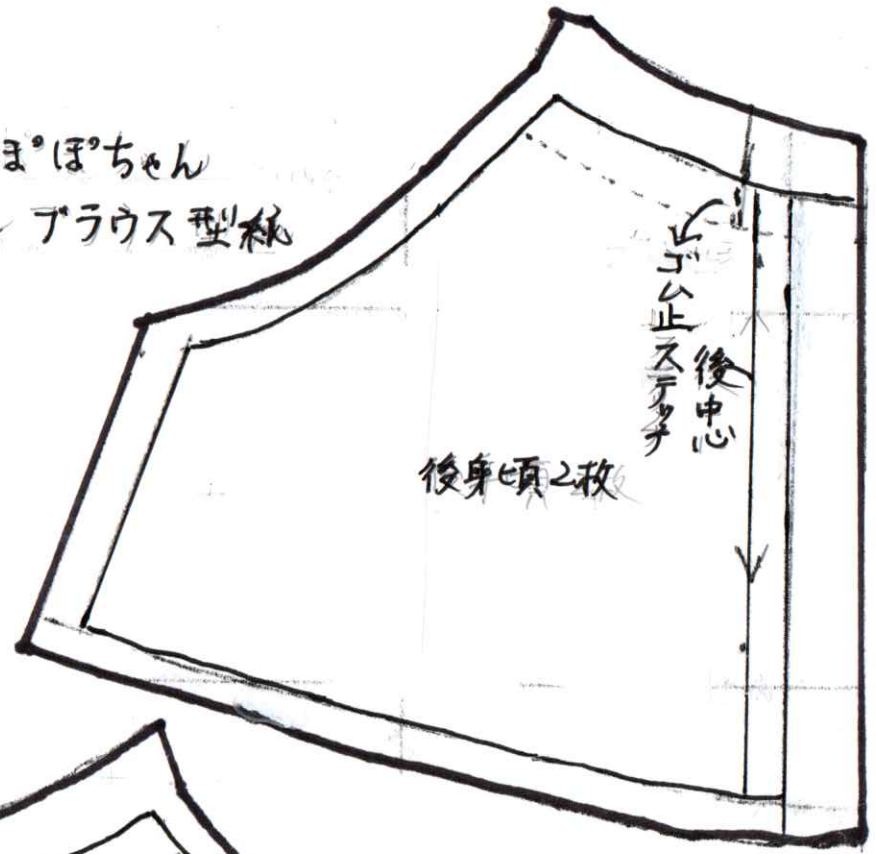 ぽぽちゃん
ブラウス型紙
ゴム止ステッチ
後中心
後身頃2枚